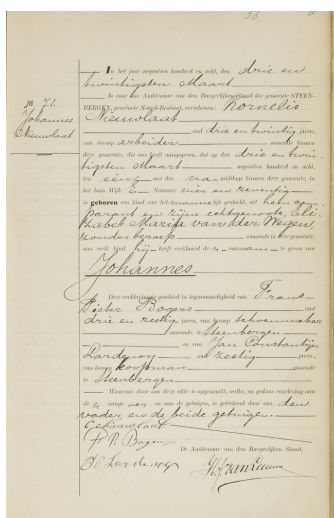 36.
No 71.
Johannes
Nieuwlaat
In het jaar negentien honderd en acht, den drie en
twintigsten Maart
Is voor ons Ambtenaar van den Burgerlijken Stand der gemeente STEEN-
BERGEN, provincie Noord-Brabant, verschenen: Kornelis
Nieuwlaat
oud drie en twintig jaren,
van beroep arbeider wonende binnen
deze gemeente, die ons heeft aangegeven, dat op den drie en twin
tigsten Maart negentien honderd en acht,
ten één ure des na middags binnen deze gemeente, in
het huis Wijk E Nummer vier en zeventig
is geboren een kind van het mannelijk geslacht, uit hem com-
parant en zijne echtgenoote, Eli-
zabet Maria van der Wegen,
zonder beroep wonende in deze gemeente,
aan welk kind hij heeft verklaard de voornaam te geven van
Johannes
Deze verklaring is geschied in tegenwoordigheid van Frans
Pieter Bogers oud
drie en zestig jaren, van beroep schoenmaker
wonende te Steenbergen
en van Jan Constantijn
Lardenoy oud zestig jaren,
van beroep koopman wonende
te Steenbergen
Waarvan door ons deze akte is opgemaakt, welke, na gedane voorlezing aan
de aangever en aan de getuigen, is geteekend door ons, den
vader en de beide getuigen.
C Nieuwlaat
Fr P. Bogers
De Ambtenaar van den Burgerlijken Stand,